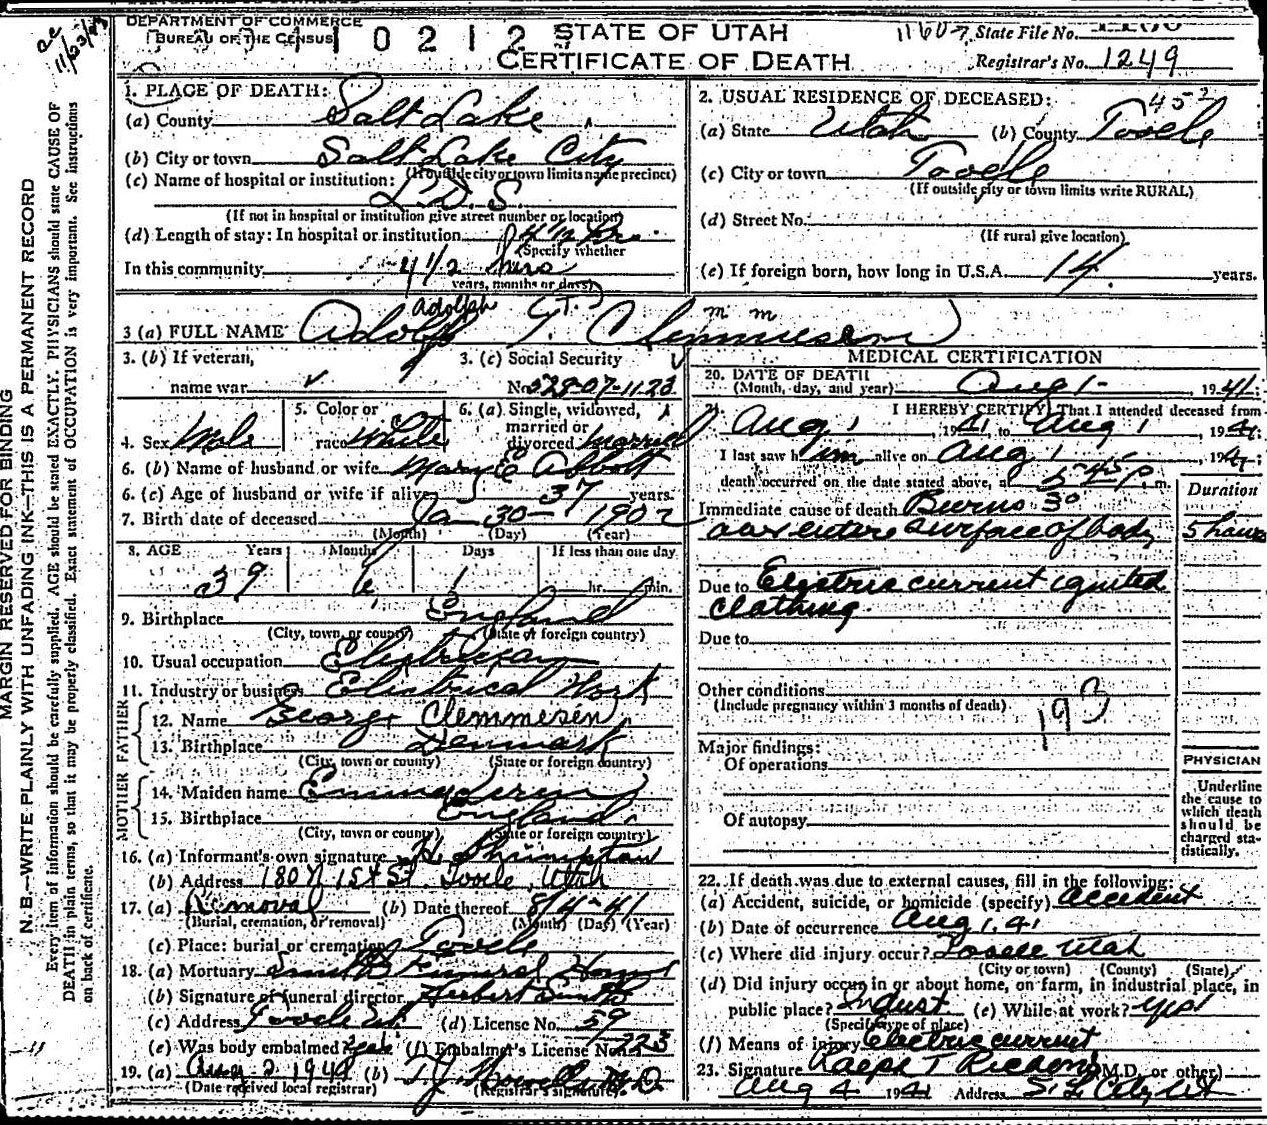 DEPARTMENT OF COMMERCE
BUREAU OF THE CENSUS
10212
STATE OF UTAH
CERTIFICATE OF DEATH
State File No.
Registrar's No. 1249
MARGIN RESERVED FOR BINDING
N. B.—WRITE PLAINLY WITH UNFADING INK—THIS IS A PERMANENT RECORD
Every item of information should be carefully supplied. AGE should be stated EXACTLY. PHYSICIANS should state CAUSE OF
DEATH in plain terms, so that it may be properly classified. Exact statement of OCCUPATION is very important. See instructions
on back of certificate.
1. PLACE OF DEATH:
(a) County Salt Lake
(b) City or town Salt Lake City
(If outside city or town limits name precinct)
(c) Name of hospital or institution:
L.D.S.
(If not in hospital or institution give street number or location)
(d) Length of stay: In hospital or institution 4 1/2 hrs.
(Specify whether
In this community 4 1/2 hrs
years, months or days)
2. USUAL RESIDENCE OF DECEASED: 452
(a) State Utah (b) County Tooele
(c) City or town Tooele
(If outside city or town limits write RURAL)
(d) Street No.
(If rural give location)
(e) If foreign born, how long in U.S.A. 14 years.
Adolph (T.) m m
3 (a) FULL NAME Adolf T. Clemmesen
3. (b) If veteran,
name war
3. (c) Social Security
No. 528-07-1123
4. Sex Male
5. Color or
race White
6. (a) Single, widowed,
married or
divorced Married
6. (b) Name of husband or wife Mary E Abbott
6. (c) Age of husband or wife if alive 37 years.
7. Birth date of deceased Jan 30 1902
(Month) (Day) (Year)
8. AGE Years Months Days If less than one day
39 6 1 hr. min.
9. Birthplace England
(City, town, or county) (State or foreign country)
10. Usual occupation Electrician
11. Industry or business Electrical Work
FATHER
12. Name George Clemmesen
13. Birthplace Denmark
(City, town or county) (State or foreign country)
MOTHER
14. Maiden name Emma
15. Birthplace England
(City, town or county) (State or foreign country)
16. (a) Informant's own signature H. Shrimpton
(b) Address 180 N 1st St. Tooele, Utah
17. (a) Removal (b) Date thereof 8/4-41
(Burial, cremation, or removal) (Month) (Day) (Year)
(c) Place: burial or cremation Tooele
18. (a) Mortuary Smith Funeral Home
(b) Signature of funeral director Herbert Smith
(c) Address Tooele Ut. (d) License No. 59
(e) Was body embalmed (f) Embalmer's License No. 223
19. (a) Aug 2 1941 (b) T.J. Howells M.D.
(Date received local registrar) (Registrar's signature)
MEDICAL CERTIFICATION
20. DATE OF DEATH
(Month, day, and year) Aug 1- 1941
21. I HEREBY CERTIFY, That I attended deceased from
Aug 1, 1941, to Aug 1, 1941;
I last saw him alive on Aug 1, 1941;
death occurred on the date stated above, at 5 45 P. m.
Duration
Immediate cause of death Burns 3°
over entire surface of body 5 hours
Due to Electric current ignited
clothing
Due to
Other conditions
(Include pregnancy within 3 months of death)
193
Major findings:
Of operations
Of autopsy
PHYSICIAN
Underline
the cause to
which death
should be
charged sta-
tistically.
22. If death was due to external causes, fill in the following:
(a) Accident, suicide, or homicide (specify) Accident
(b) Date of occurrence Aug 1, 41
(c) Where did injury occur? Tooele Utah
(City or town) (County) (State)
(d) Did injury occur in or about home, on farm, in industrial place, in
public place? Indust. (e) While at work? yes
(Specify type of place)
(f) Means of injury Electric current
23. Signature Ralph T. (M.D. or other)
Aug 4 1941 Address S. L. City, Ut